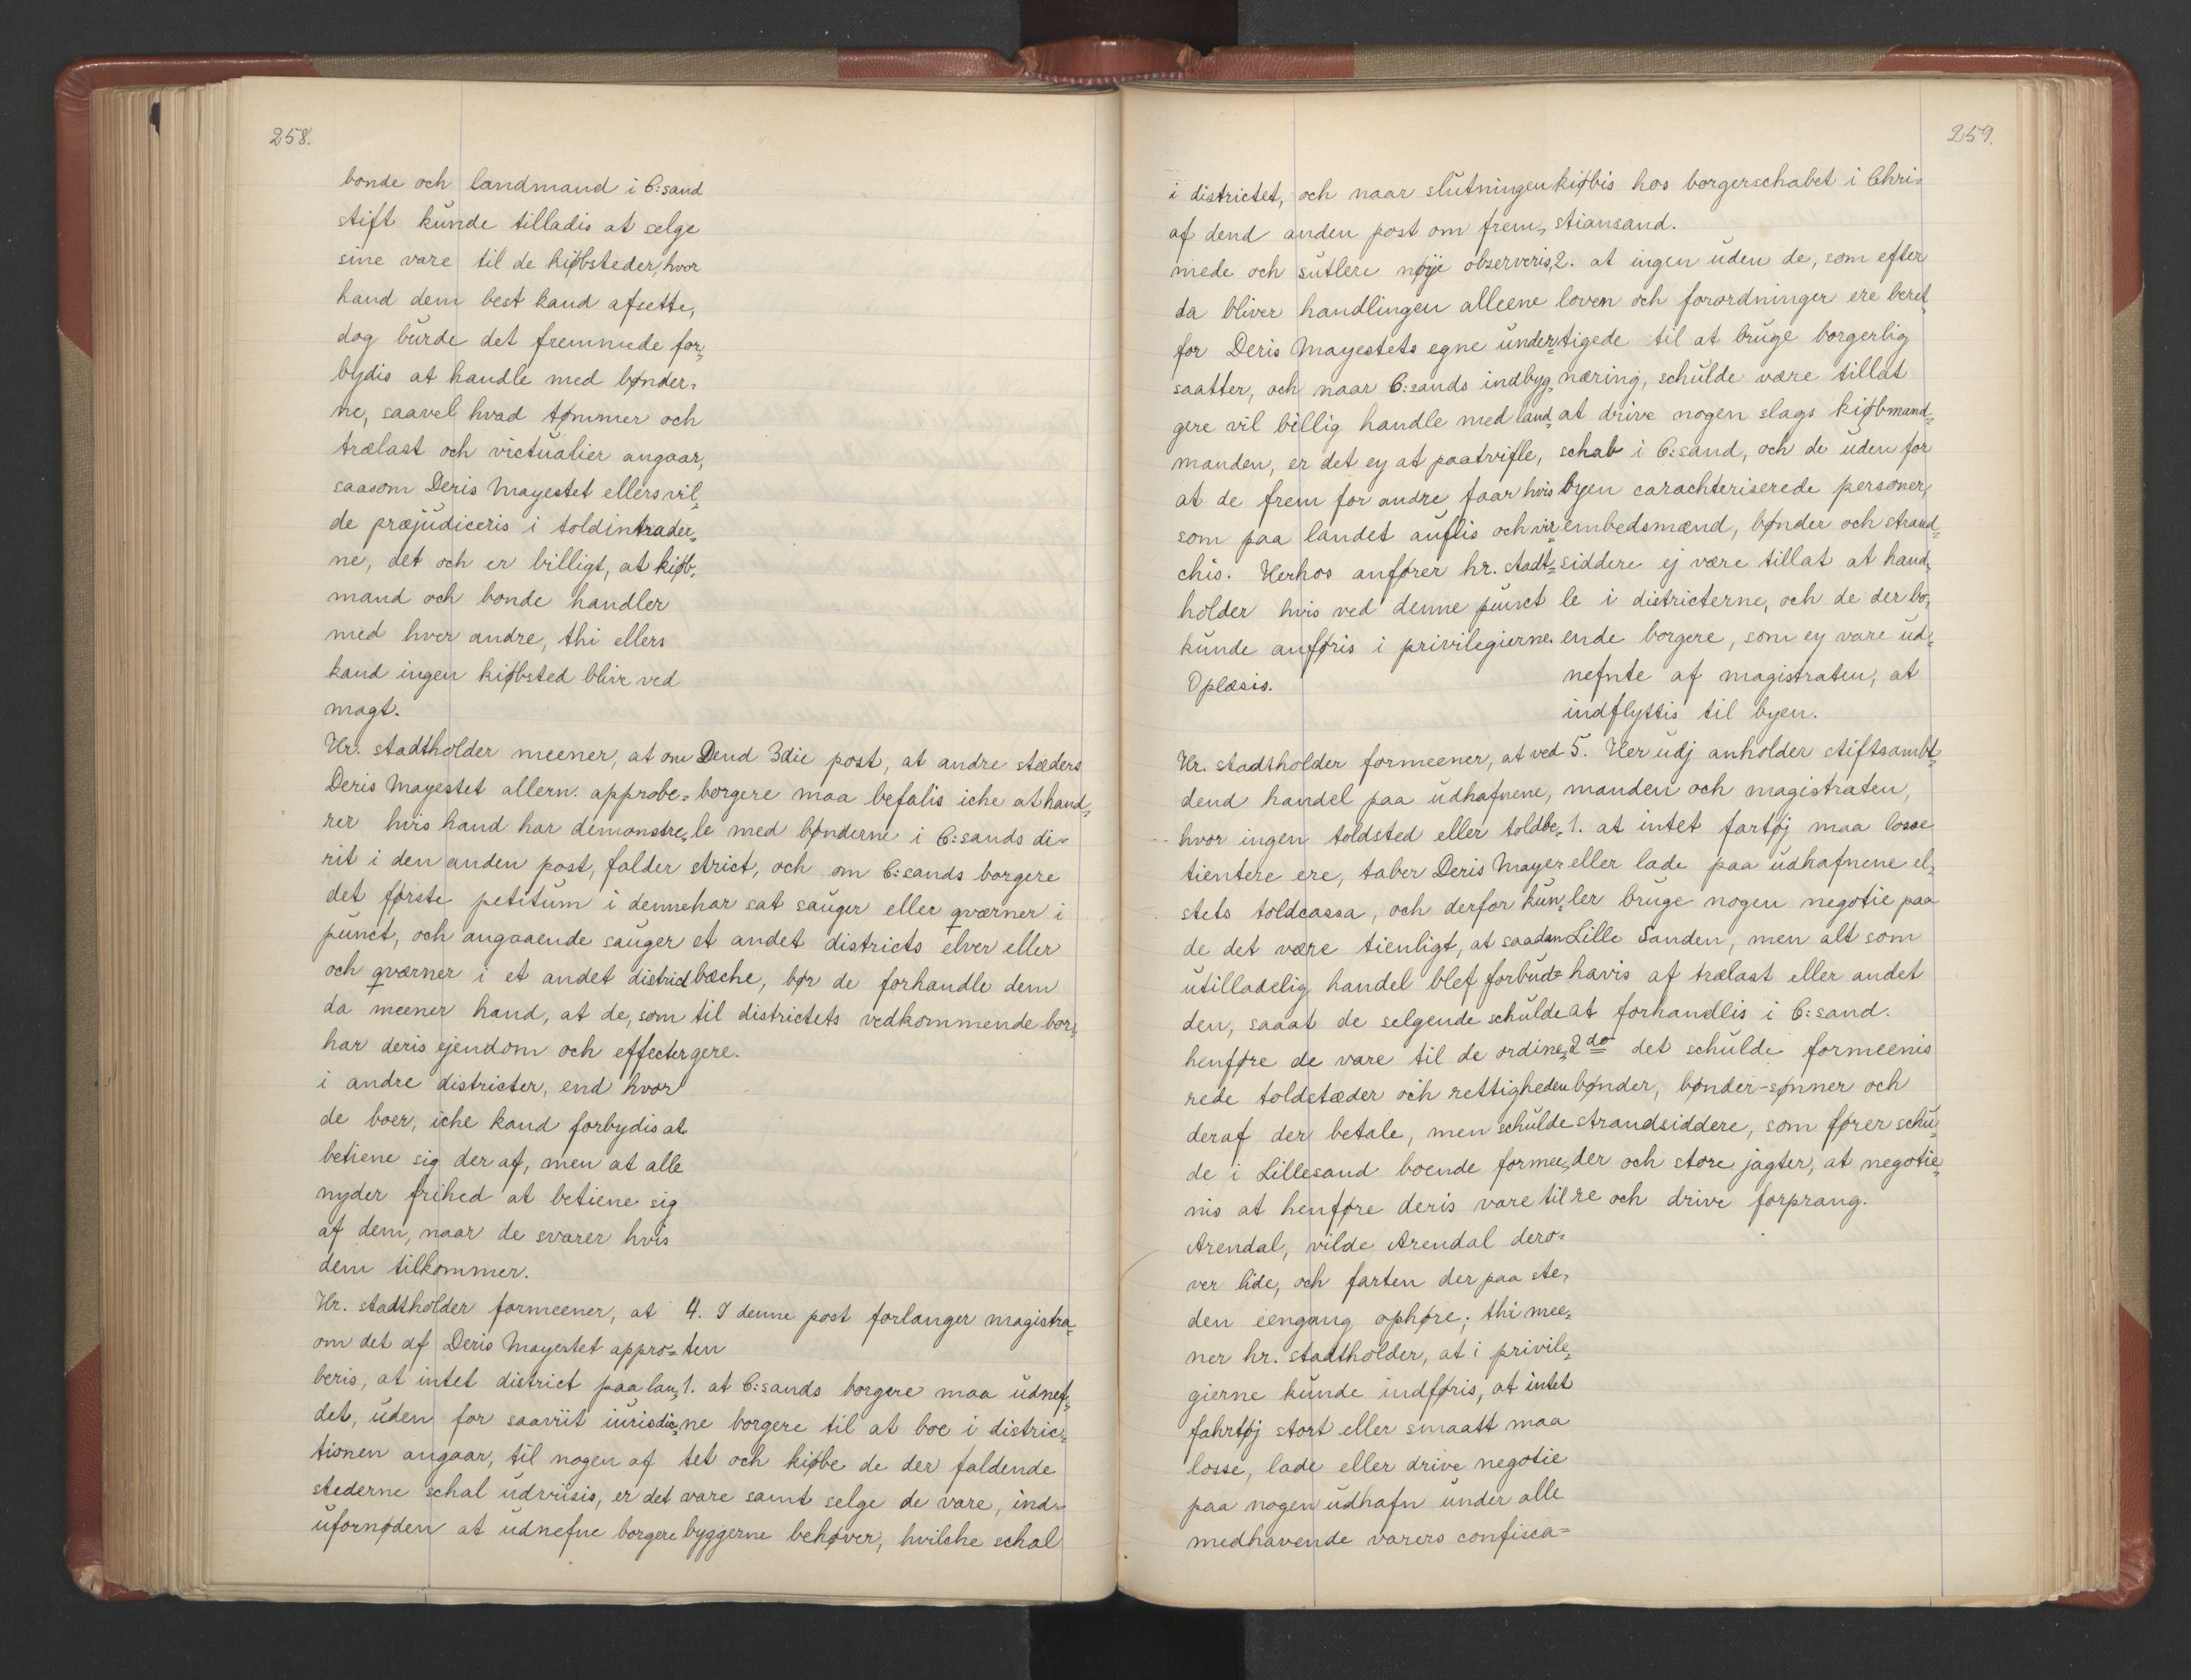 258.
bonde och landmand i C:sand
stift kunde tilladis at selge
sine vare til de kiøbsteder, hvor
hand dem best kand afsette,
dog burde det fremmede for=
bydis at handle med bønder=
ne, saavel hvad tømmer och
trælast och victualier angaar,
saasom Deris Mayestet ellers vil=
de præjudiceris i toldintrader=
ne, det och er billigt, at kiøb=
mand och bonde handler
med hver andre, thi ellers
kand ingen kiøbsted blive ved
magt.
Hr. stadtholder meener, at om
Deris Mayestet allern. approbe=
rer hvis hand har demonstre=
rit i den anden post, falder
det første petitum i denne
punct, och angaaende sauger
och qværner i et andet district
da meener hand, at de, som
har deris ejendom och effecter
i andre districter, end hvor
de boer, iche kand forbydis at
betiene sig der af, men at alle
nyder frihed at betiene sig
af dem, naar de svarer hvis
dem tilkommer.
Dend 3die post, at andre stæders
borgere maa befalis iche at hand=
le med bønderne i C:sands di=
strict, och om C:sands borgere
har sat sauger eller qværner i
et andet districts elver eller
bæche, bør de forhandle dem
til districtets vedkommende bor=
gere.
Hr. stadtholder formeener, at
om det af Deris Mayestet appro=
beris, at intet district paa lan=
det, uden for saaviit iurisdic=
tionen angaar, til nogen af
stederne schal udviisis, er det
ufornøden at udnefne borgere
4. I denne post forlanger magistra=
ten
1. at C:sands borgere maa udnef=
ne borgere til at boe i distric=
tet och kiøbe de der faldende
vare samt selge de vare, ind=
byggerne behøver, hvilche schal
259.
i districtet, och naar slutningen
af dend anden post om frem=
mede och sutlere nøye observeris,
da bliver handlingen alleene
for Deris Mayestets egne under=
saatter, och naar C:sands indbyg=
gere vil billig handle med land=
manden, er det ey at paatvifle,
at de frem for andre faar hvis
som paa landet auflis och vir=
chis. Herhos anfører hr. stadt=
holder hvis ved denne punct
kunde anføris i privilegierne.
Oplæsis.
kiøbis hos borgerschabet i Chri=
stiansand.
2. at ingen uden de, som efter
loven och forordninger ere beret=
tigede til at bruge borgerlig
næring, schulde være tillat
at drive nogen slags kiøbmand=
schab i C:sand, och de uden for
byen carachteriserede personer,
embedsmænd, bønder och strand=
siddere ej være tillat at hand=
le i districterne, och de der bo=
ende borgere, som ey vare ud=
nefnte af magistraten, at
indflyttis til byen.
Hr. stadtholder formeener, at ved
dend handel paa udhafnene,
hvor ingen toldsted eller toldbe=
tientere ere, taber Deris Maye=
stets toldcassa, och derfor kun=
de det være tienligt, at saadan
utilladelig handel blef forbud=
den, saaat de selgende schulde
henføre de vare til de ordine=
rede toldstæder och rettigheden
deraf der betale, men schulde
de i Lillesand boende formee=
nis at henføre deris vare til
Arendal, vilde Arendal dero=
ver lide, och farten der paa ste=
den eengang ophøre; thi mee=
ner hr. stadtholder, at i privile=
gierne kunde indføris, at intet
fahrtøj stort eller smaatt maa
losse, lade eller drive negotie
paa nogen udhafn under alle
medhavende varers confisca=
5. Her udj anholder stiftsambt=
manden och magistraten,
1. at intet fartøj maa losse
eller lade paa udhafnene el=
ler bruge nogen negotie paa
Lille Sanden, men alt som
havis af trælast eller andet
at forhandlis i C:sand.
2do det schulde formeenis
bønder, bønder-sønner och
strandsiddere, som fører schu=
der och store jagter, at negotie=
re och drive forprang.